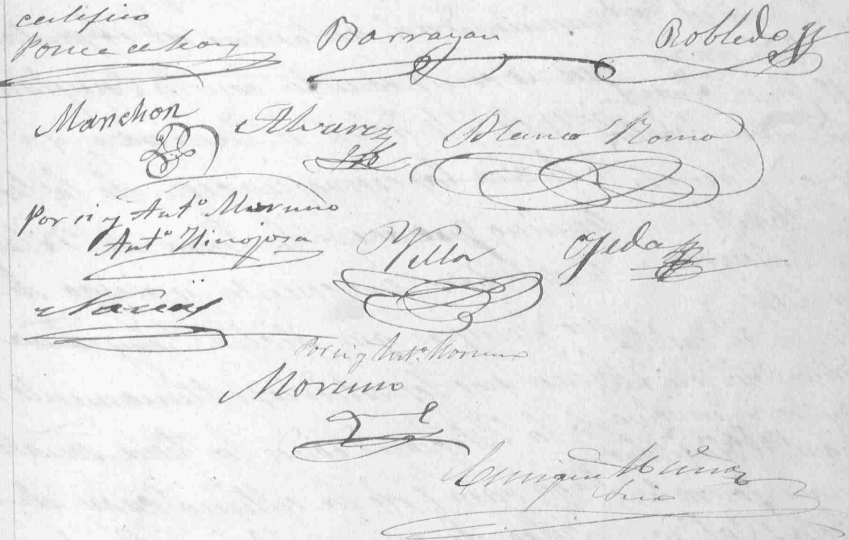 certifico
Ponce de Leon Barragan Robledo
Manchon Alvarez Blanco Romo
Por si y Antº Moreno
Antº Hinojosa Villa Ojeda
Macias
Por si y Antº Moreno
Moreno
Enrique Muñoz